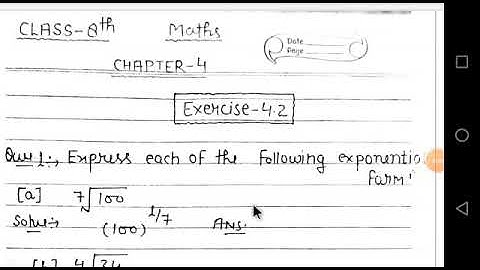 CLASS-8th Maths
Date
Page
CHAPTER-4
Exercise-4.2
Que 1:, Express each of the following exponentia
farm:
[a] 7√100
Solve:→ (100)^1/7 Ans.
4√34